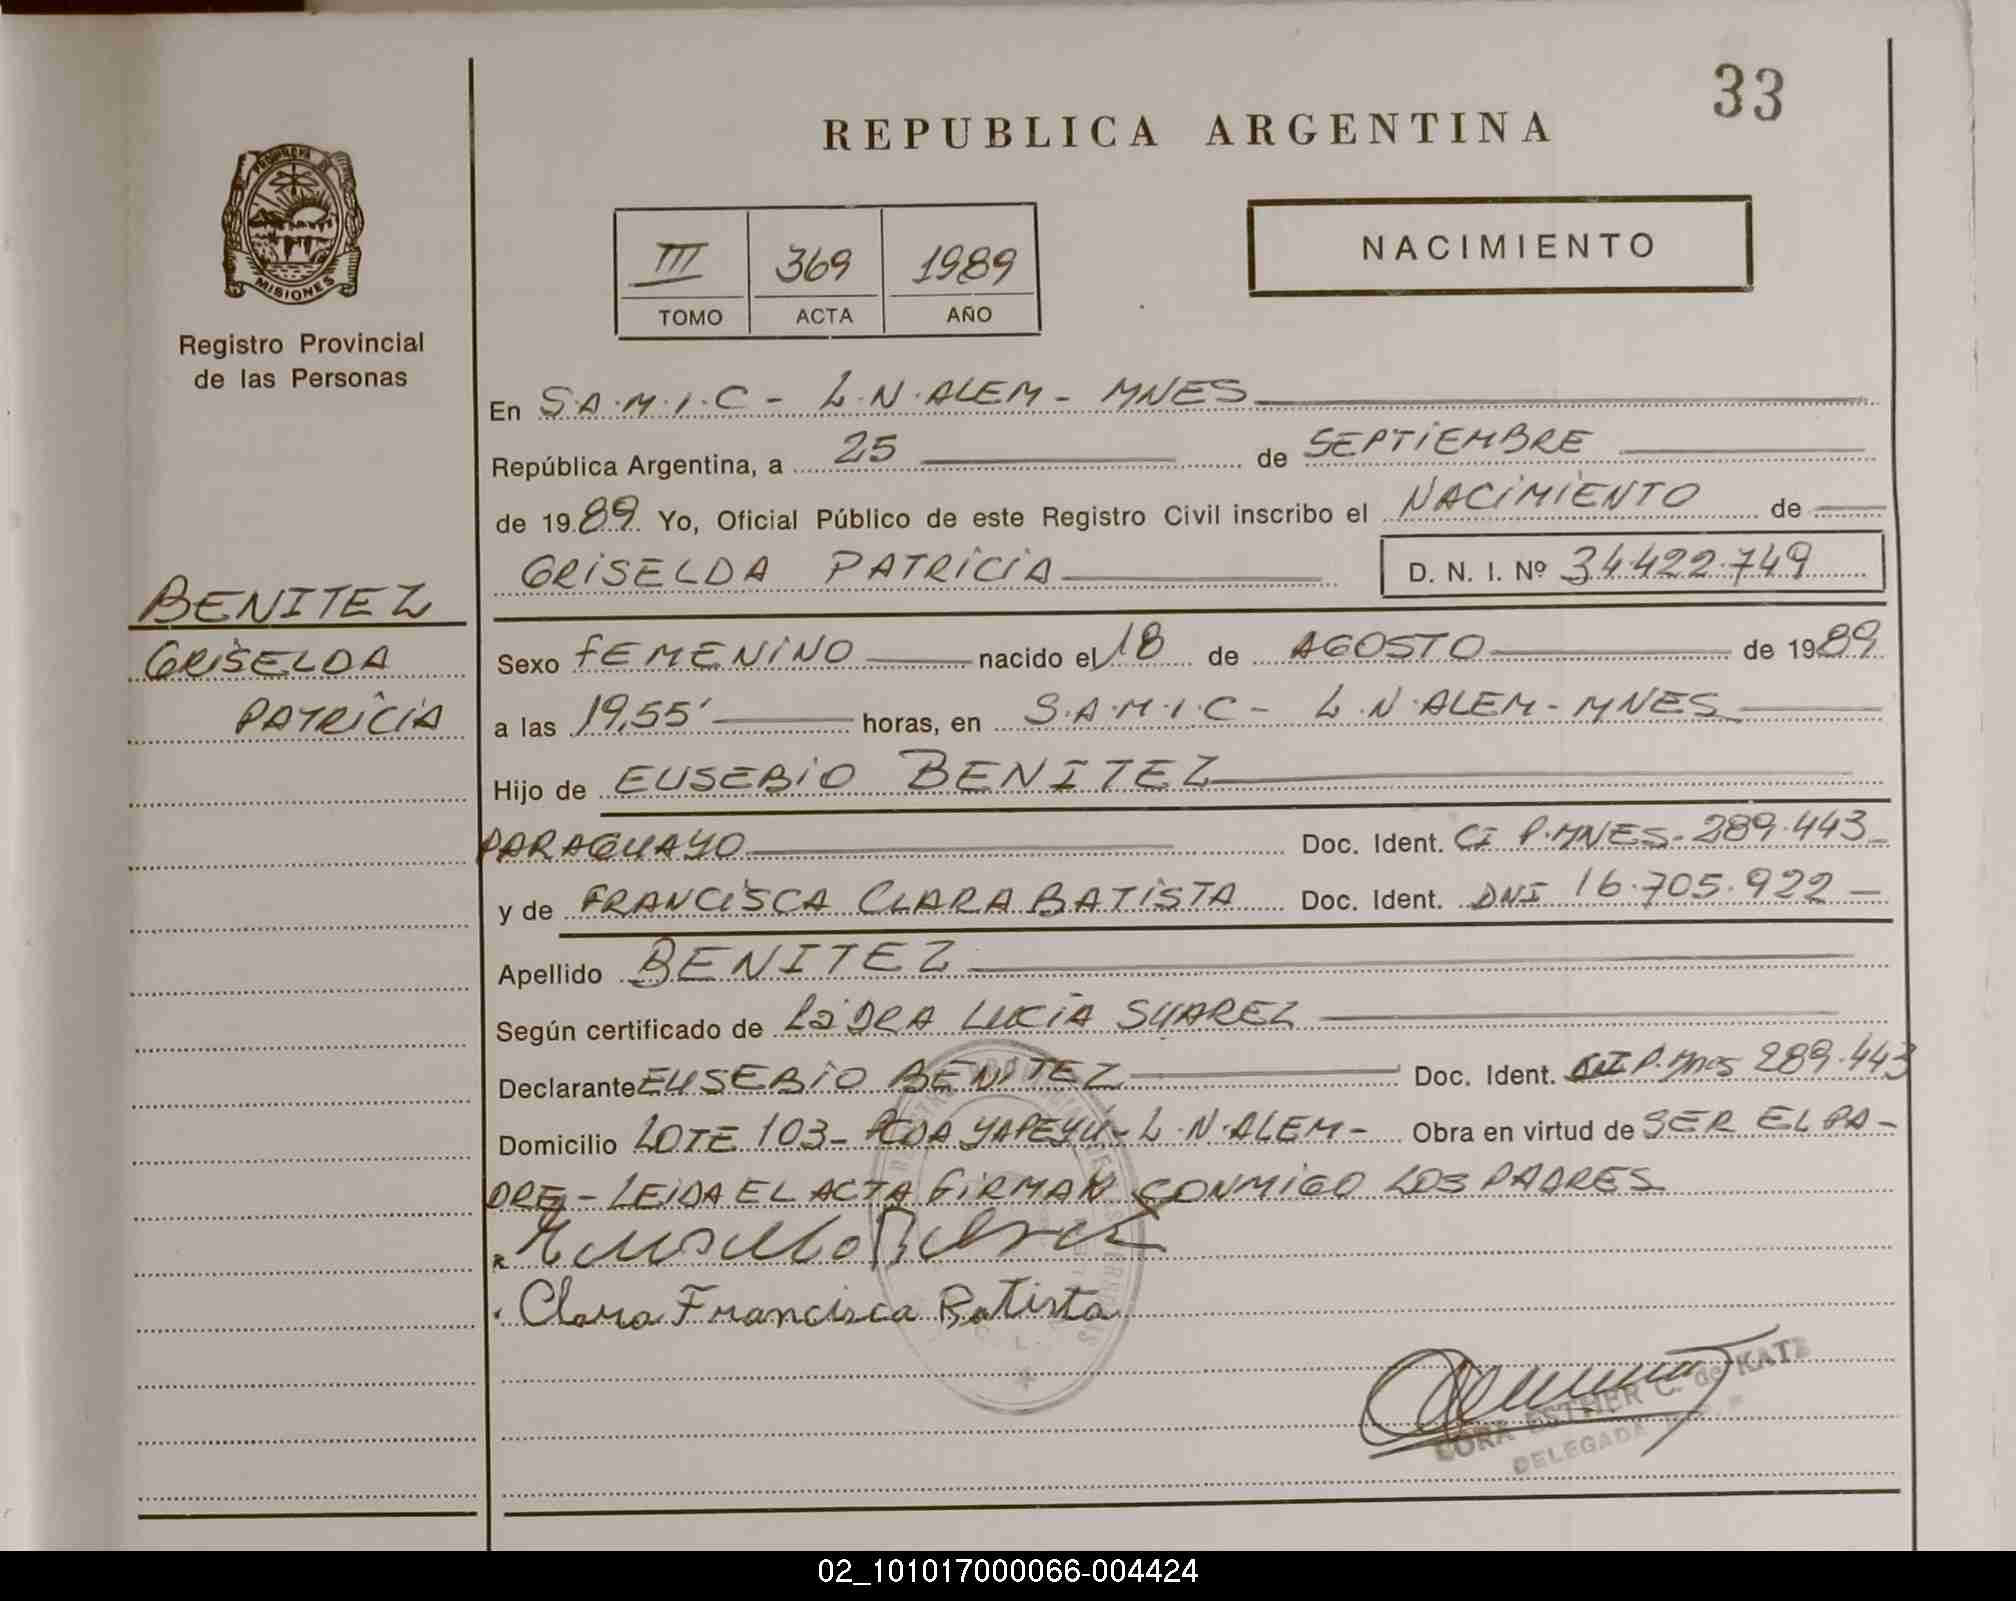 33
REPUBLICA ARGENTINA
PROVINCIA DE
MISIONES
Registro Provincial
de las Personas
III 369 1989
TOMO ACTA AÑO
NACIMIENTO
En S.A.M.I.C - L.N.ALEM - MNES
República Argentina, a 25 de SEPTIEMBRE
de 1989 Yo, Oficial Público de este Registro Civil inscribo el NACIMIENTO de
GRISELDA PATRICIA D. N. I. Nº 34.422.749
BENITEZ
GRISELDA
PATRICIA
Sexo FEMENINO nacido el 18 de AGOSTO de 1989
a las 19,55' horas, en S.A.M.I.C - L.N.ALEM - MNES
Hijo de EUSEBIO BENITEZ
PARAGUAYO Doc. Ident. CI P.MNES- 289.443
y de FRANCISCA CLARA BATISTA Doc. Ident. DNI 16.705.922
Apellido BENITEZ
Según certificado de La DRA LUCIA SUAREZ
Declarante EUSEBIO BENITEZ Doc. Ident. P.Mnes 289.443
Domicilio LOTE 103- PCDA YAPEYÚ- L.N.ALEM- Obra en virtud de SER EL PA-
DRE - LEIDA EL ACTA FIRMAN CONMIGO LOS PADRES
Clara Francisca Batista
CORA ESTHER C. de KATZ
DELEGADA
02_101017000066-004424